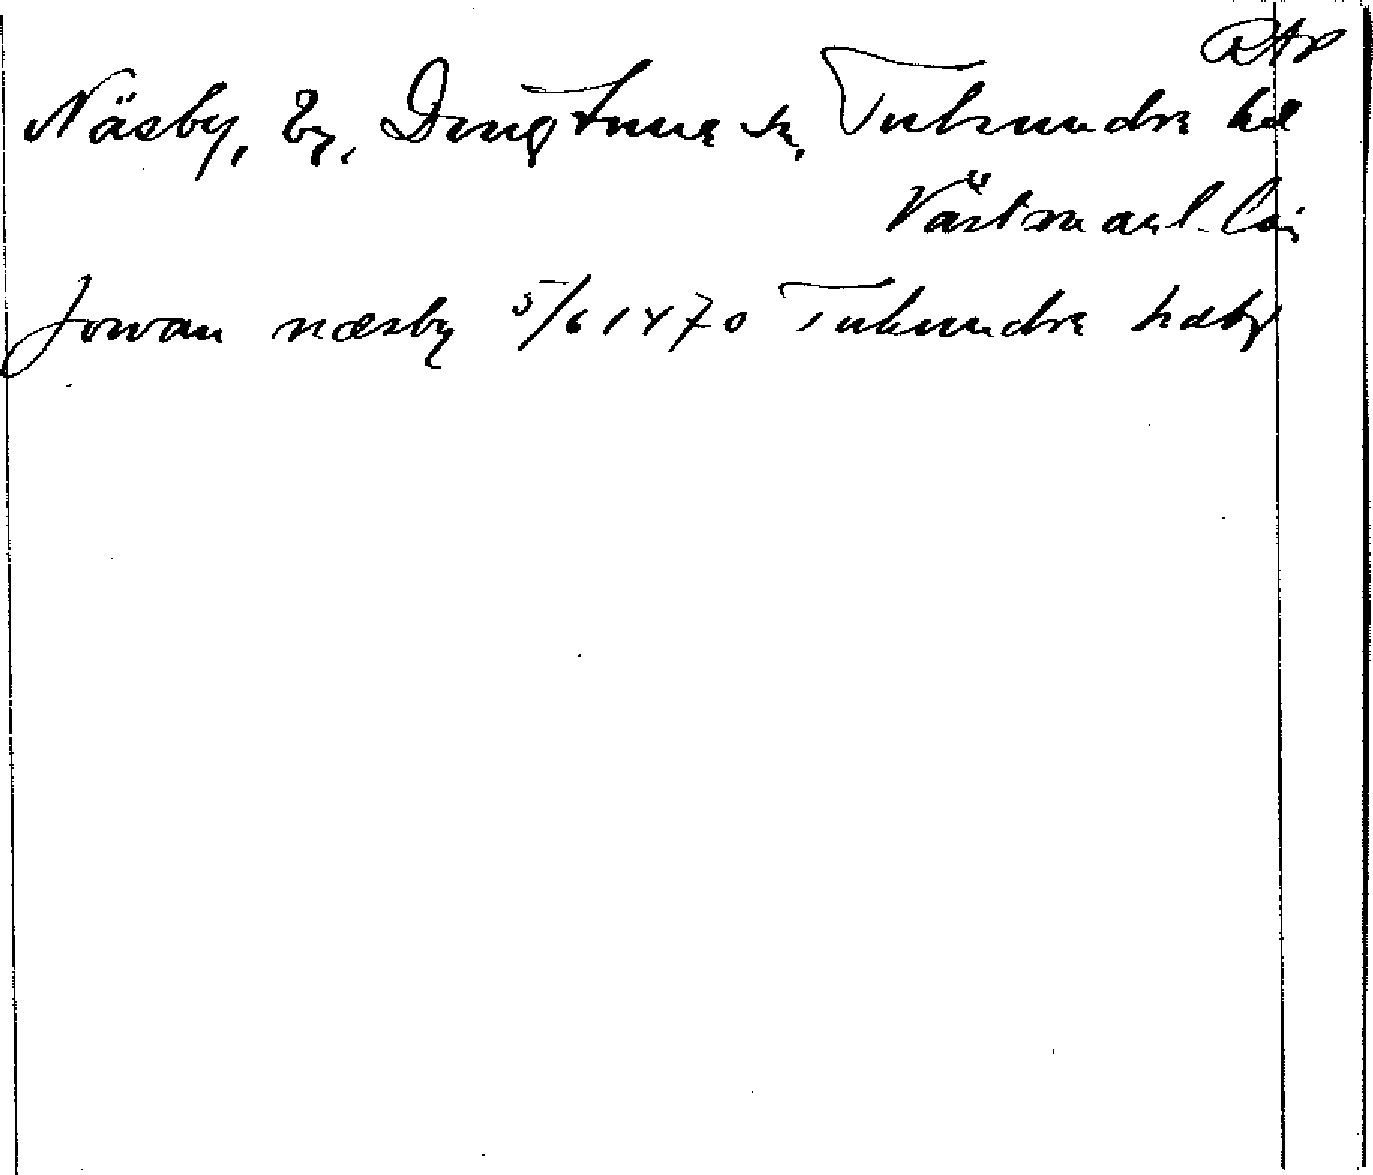 RAP
Näsby, by, Dingtuna sn, Tuhundra hd
Västmanl. län
Jowan næsby 5/6 1470 Tuhundra hdbr